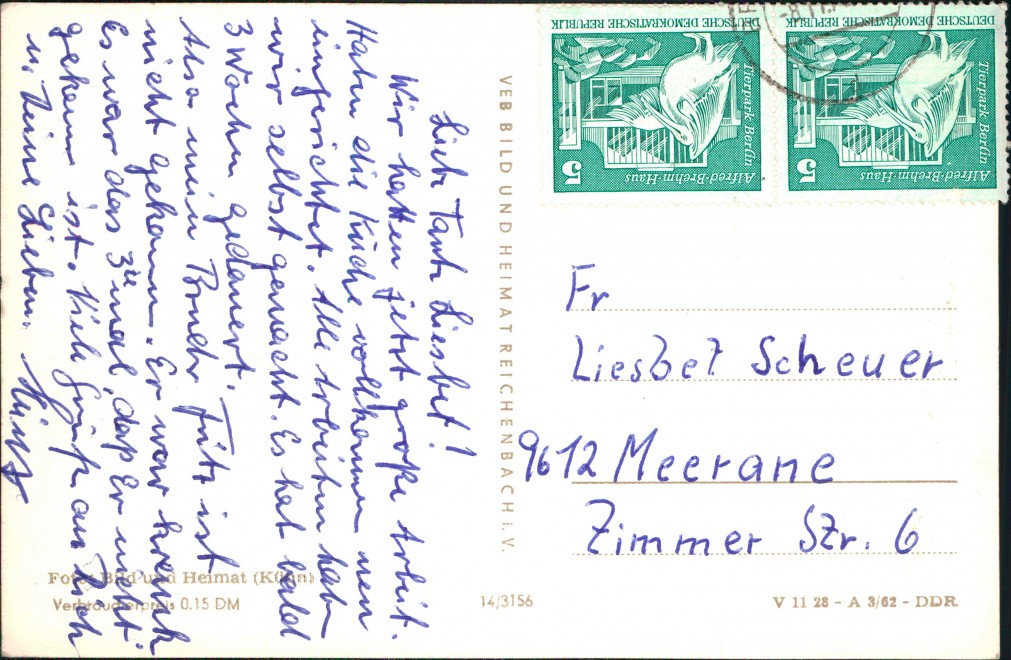 Liebe Tante Liesbet!
Wir hatten jetzt große Arbeit.
Haben die Küche vollkommen neu
eingerichtet. Alle Arbeiten haben
wir selbst gemacht. Es hat bald
3 Wochen gedauert.
Also mein Bruder Fritz ist
nicht gekomm. Er war krank
Es war das 3te mal, daß Er nicht
gekomm ist. Viele Grüße an Dich
u. Deine Lieben.
VEB BILD UND HEIMAT REICHENBACH i. V.
DEUTSCHE DEMOKRATISCHE REPUBLIK
Tierpark Berlin
Alfred-Brehm-Haus
5
DEUTSCHE DEMOKRATISCHE REPUBLIK
Tierpark Berlin
Alfred-Brehm-Haus
5
Fr
Liesbet Scheuer
9612 Meerane
Zimmer Str. 6
Foto: Bild und Heimat (Kühn)
Verbraucherpreis 0.15 DM
14/3156
V 11 28 - A 3/62 - DDR